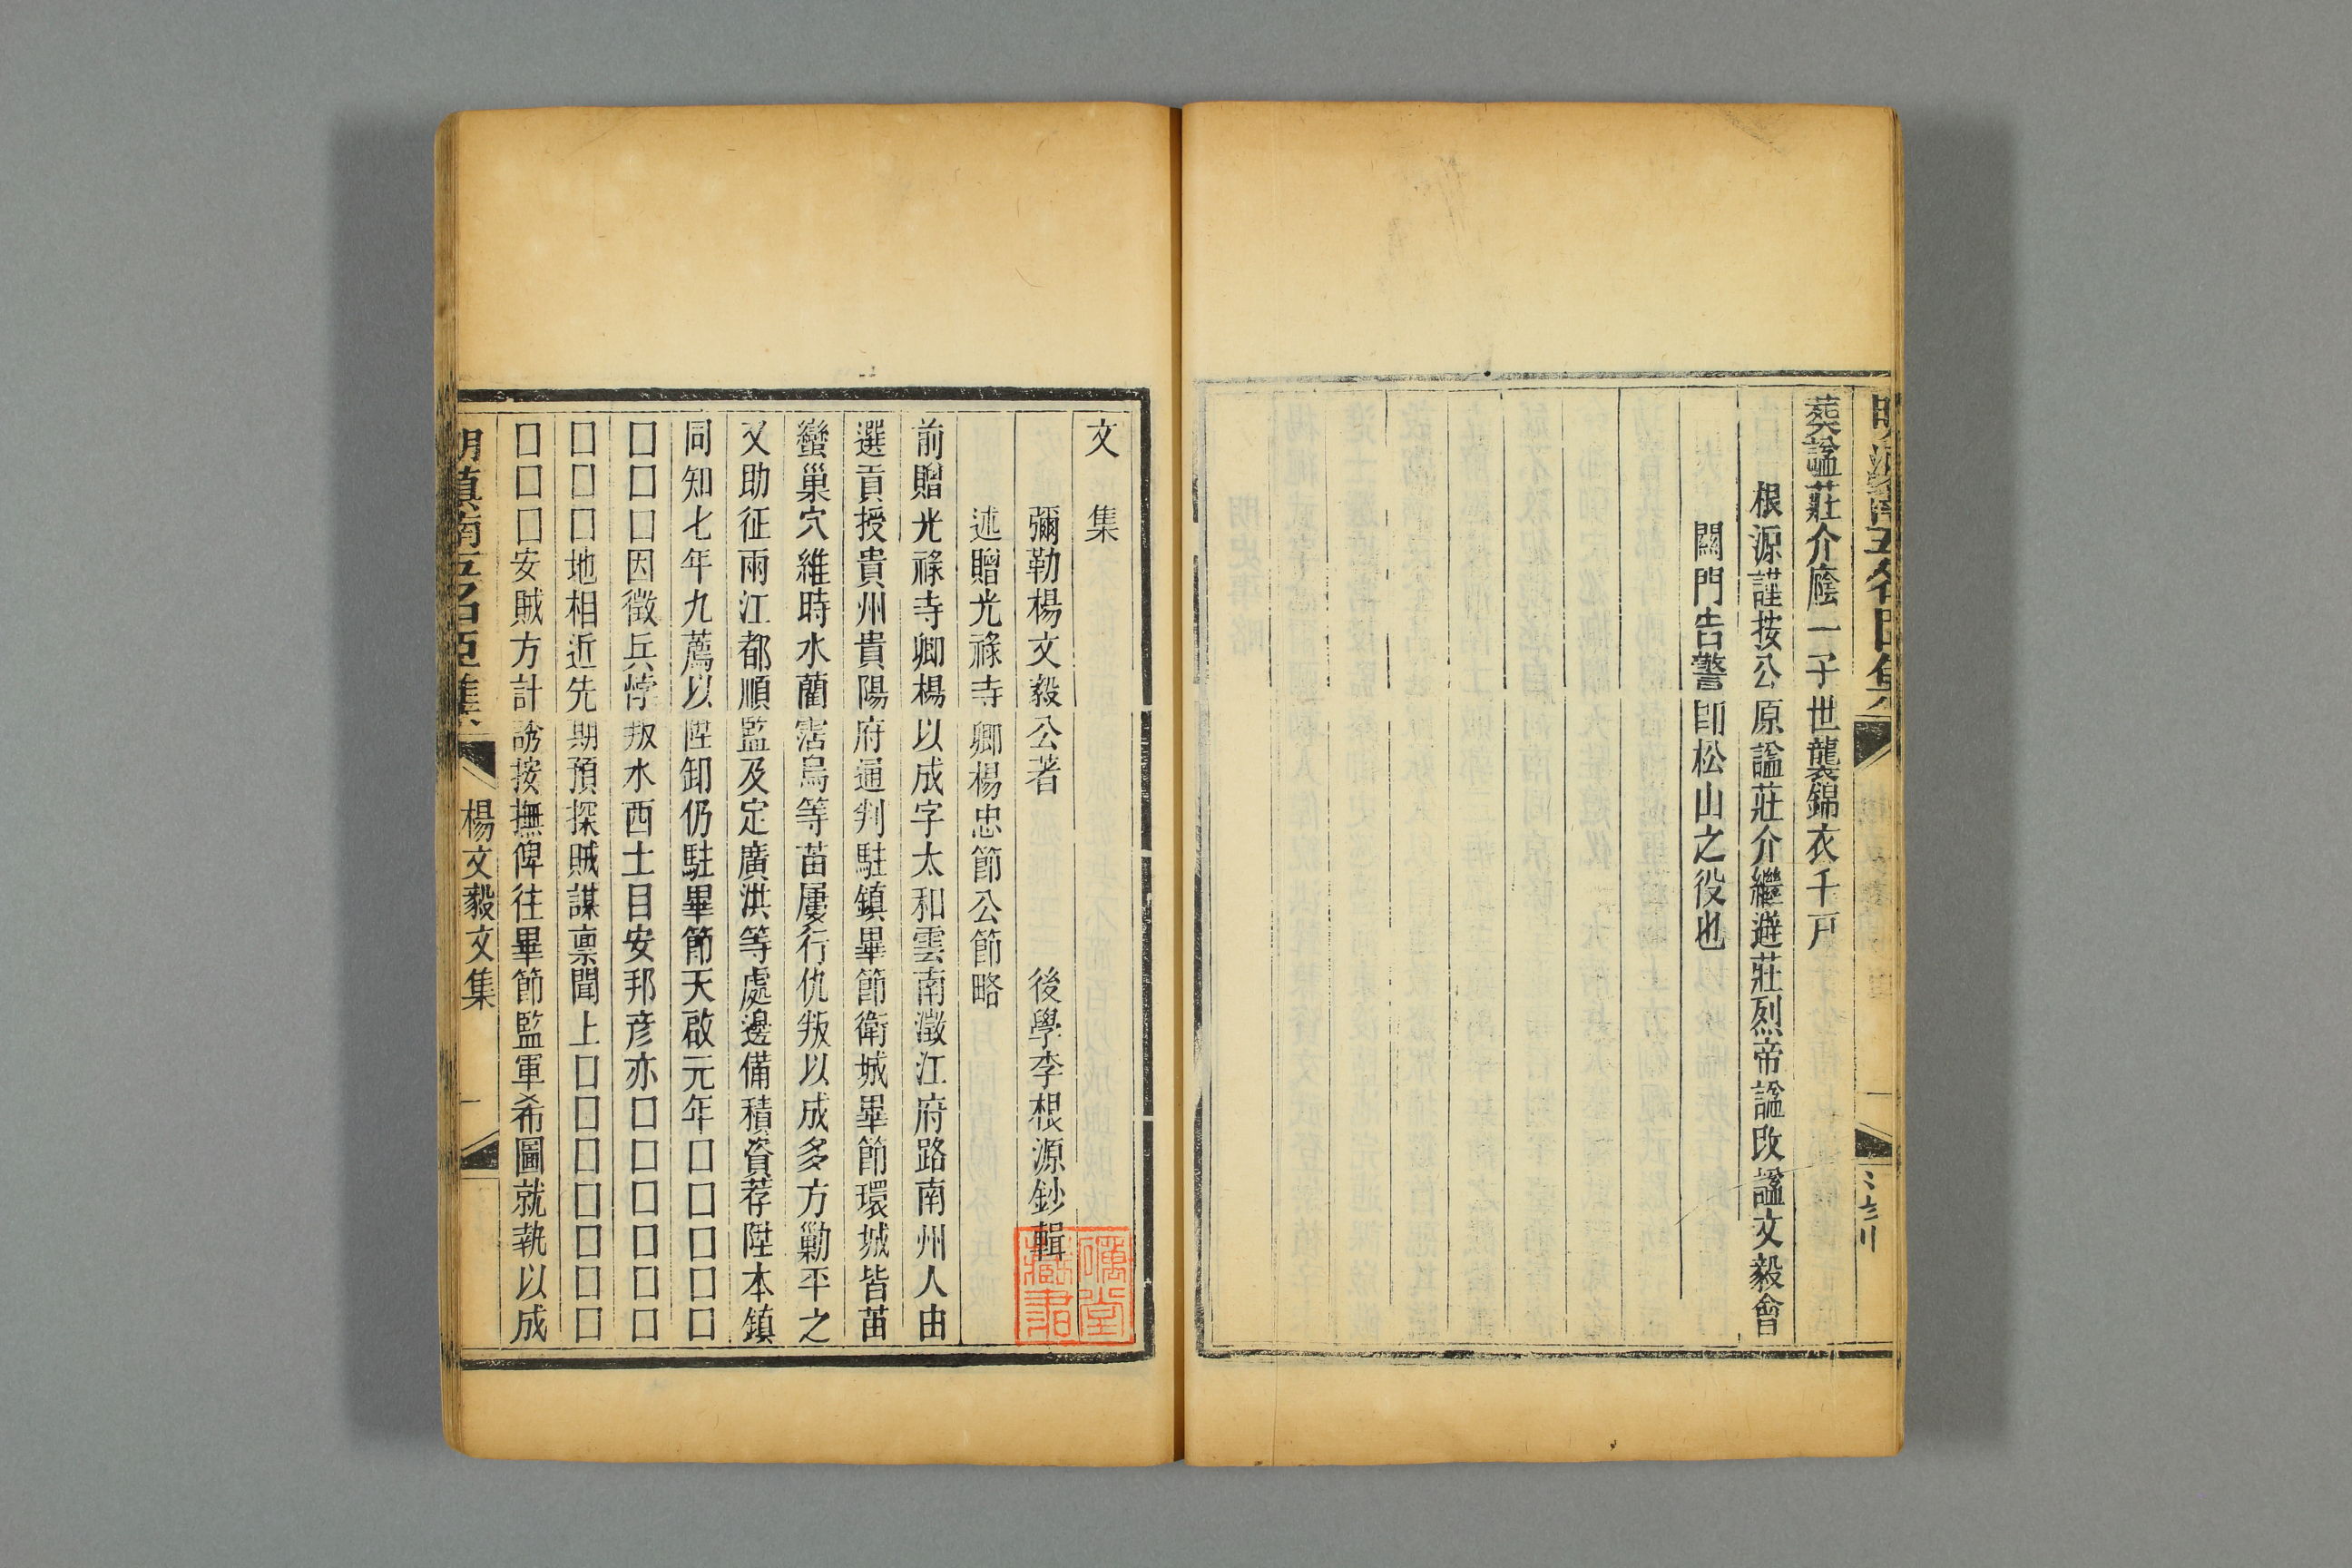 葬諡莊介廕一子世襲錦衣千戶
根源謹按公原諡莊介繼避莊烈帝諡改諡文毅會
關門告警卽松山之役也
文集
彌勒楊文毅公著 後學李根源鈔輯
述贈光祿寺卿楊忠節公節略
前贈光祿寺卿楊以成字太和雲南澂江府路南州人由
選貢授貴州貴陽府通判駐鎮畢節衛城畢節環城皆苗
蠻巢穴維時水藺霑烏等苗屢行仇叛以成多方勦平之
又助征兩江都順監及定廣洪等處邊備積資荐陞本鎮
同知七年九薦以陞卸仍駐畢節天啟元年囗囗囗囗囗
囗囗囗因徵兵悖叛水西土目安邦彥亦囗囗囗囗囗囗
囗囗囗地相近先期預探賊謀禀聞上囗囗囗囗囗囗囗
囗囗囗安賊方計誘按撫俾往畢節監軍希圖就執以成
明滇南五名臣集 楊文毅文集 一